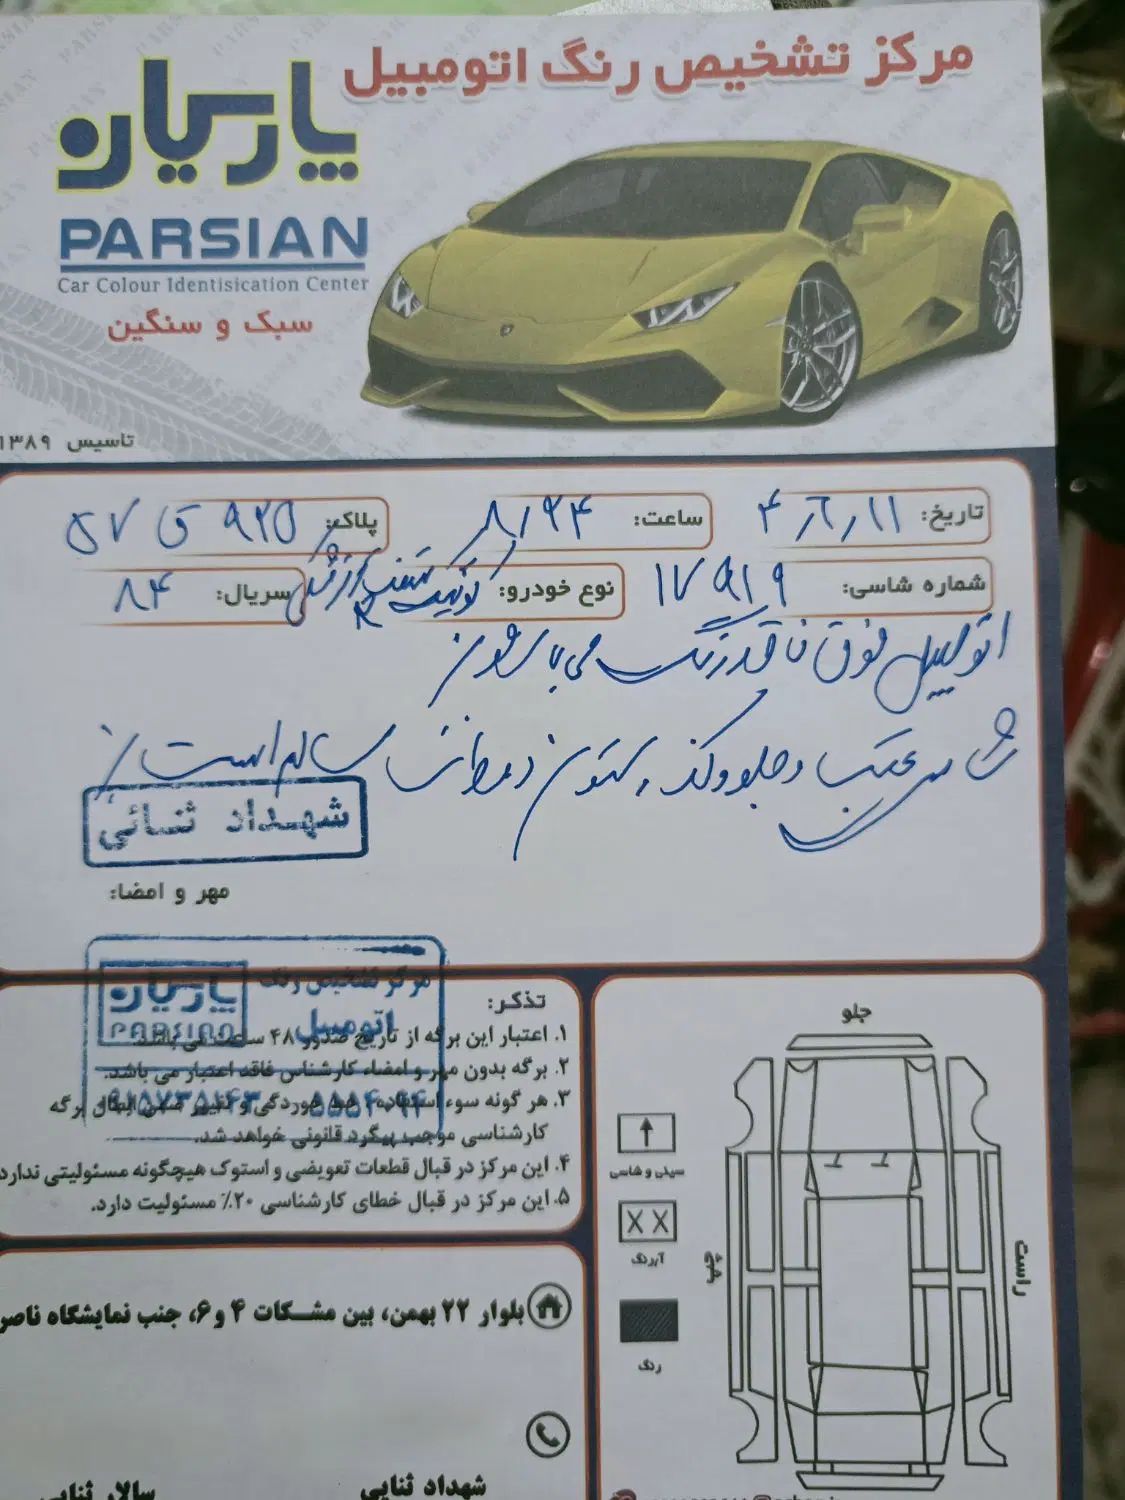 مرکز تشخیص رنگ اتومبیل
پارسیان
PARSIAN
Car Colour Identisication Center
سبک و سنگین
تاسیس ۱۳۸۹
تاریخ: ۴٫۶٫۱۱ ساعت: ۸٫۲۴ پلاک: ۹۲۵ ق ۵۷
شماره شاسی: ۱۷۹۱۹ نوع خودرو: سریال: ۸۴
اتومبیل فوق فاقد رنگ می باشد
شاسی عقب و جلو و ستون سالم است
شهداد ثنائی
مهر و امضا:
مرکز تشخیص رنگ
اتومبیل
پارسیان
PARSIAN
تذکر:
۱. اعتبار این برگه از تاریخ صدور ۴۸ ساعت می باشد.
۲. برگه بدون مهر و امضاء کارشناس فاقد اعتبار می باشد.
۳. هر گونه سوء استفاده، خط خوردگی و برگه
کارشناسی موجب پیگرد قانونی خواهد شد.
۴. این مرکز در قبال قطعات تعویضی و استوک هیچگونه مسئولیتی ندارد
۵. این مرکز در قبال خطای کارشناسی ۲۰٪ مسئولیت دارد.
جلو
سینی و شاسی
XX
آبرنگ
رنگ
چپ
راست
بلوار ۲۲ بهمن، بین مشکات ۴ و ۶، جنب نمایشگاه ناصر
شهداد ثنایی
سالار ثنایی